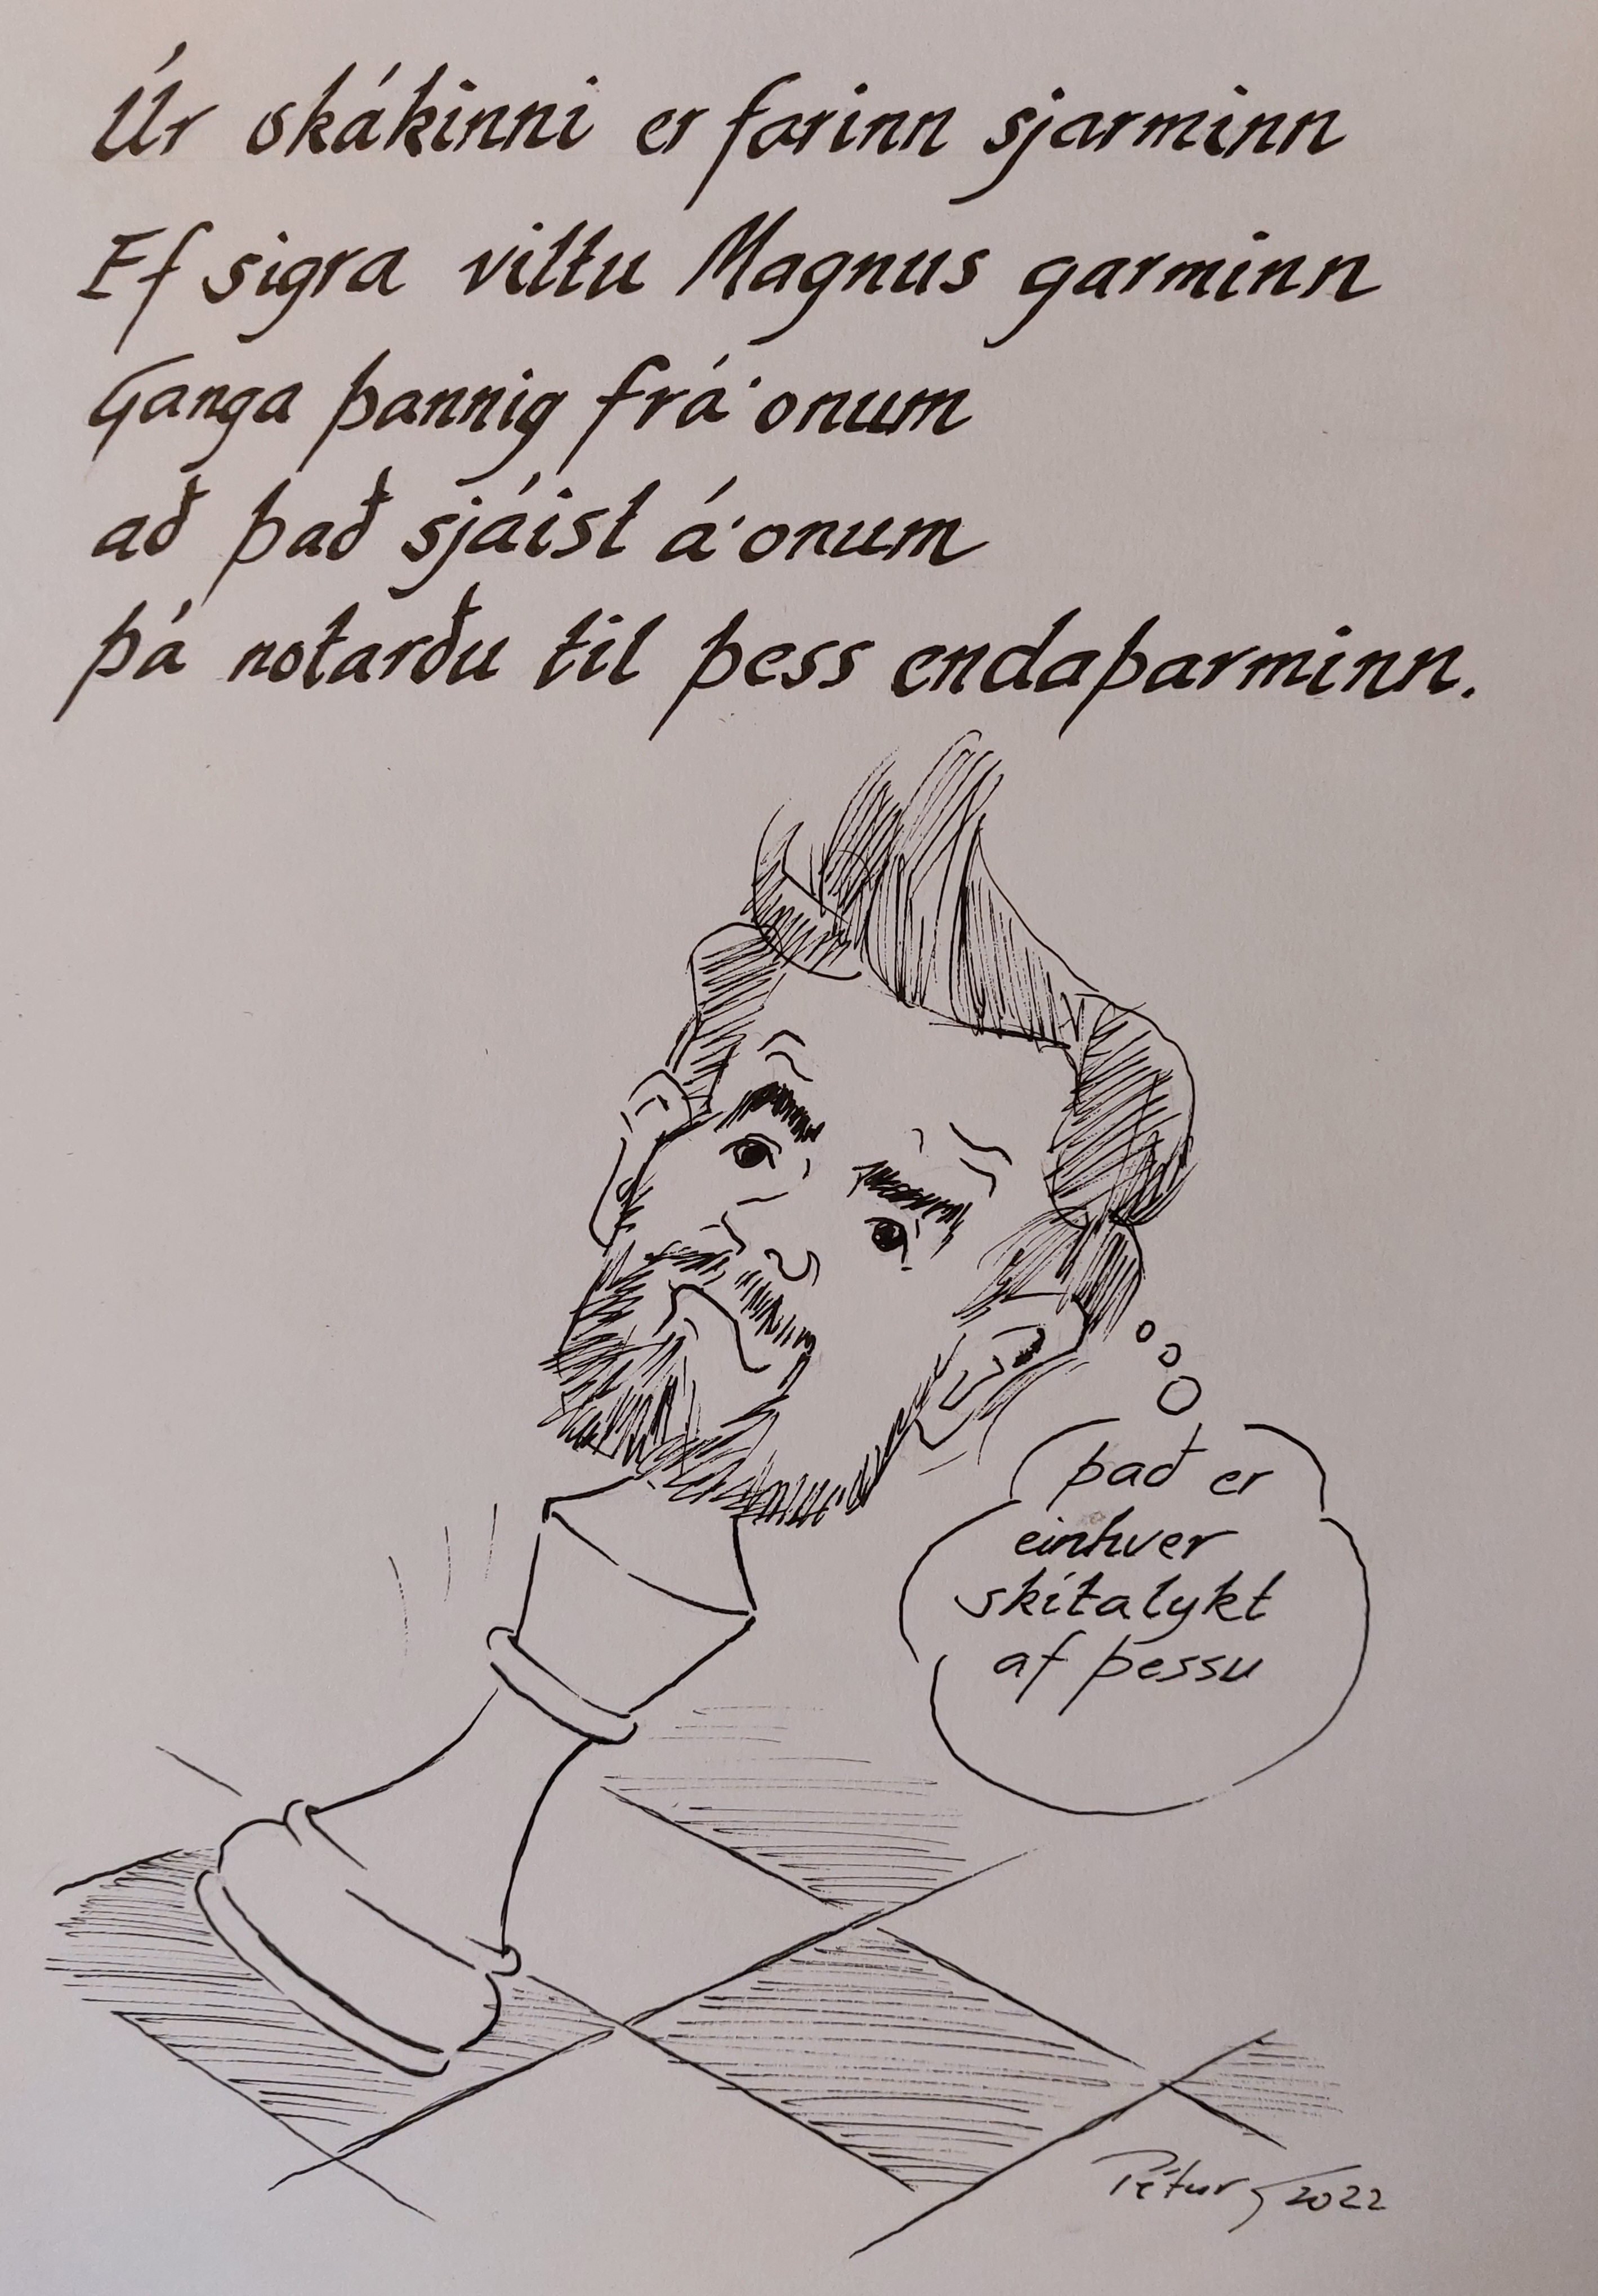 Úr skákinni er farinn sjarminn
Ef sigra viltu Magnus garminn
Ganga þannig frá'onum
að það sjáist á'onum
þá notarðu til þess endaþarminn.
það er
einhver
skítalykt
af þessu
Pétur 2022